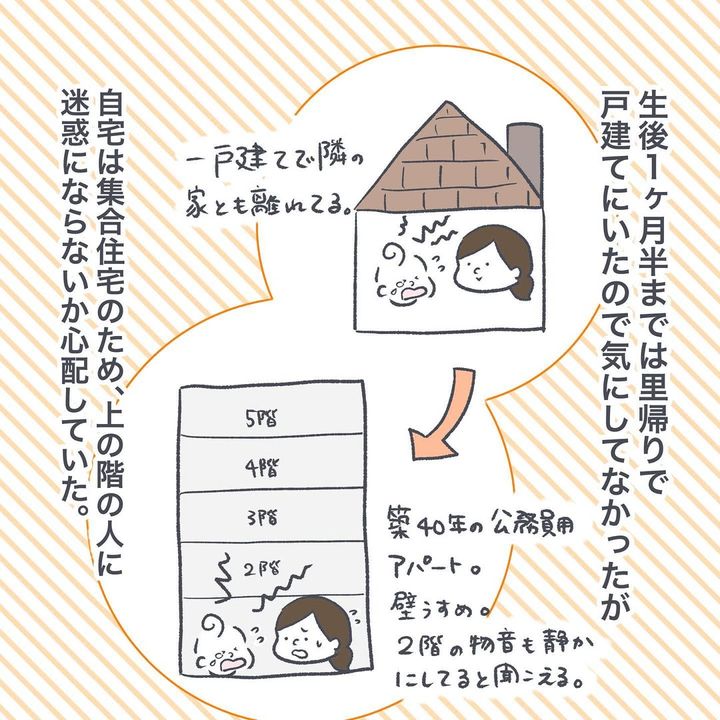 生後1ヶ月半までは里帰りで
戸建てにいたので気にしてなかったが
一戸建てで隣の
家とも離れてる。
自宅は集合住宅のため、上の階の人に
迷惑にならないか心配していた。
5階
4階
3階
2階
築40年の公務員用
アパート。
壁うすめ。
2階の物音も静か
にしてると聞こえる。